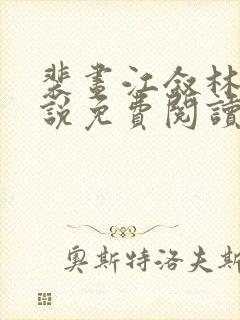 裴晝江敘林
說免費閱讀
奧斯特洛夫斯